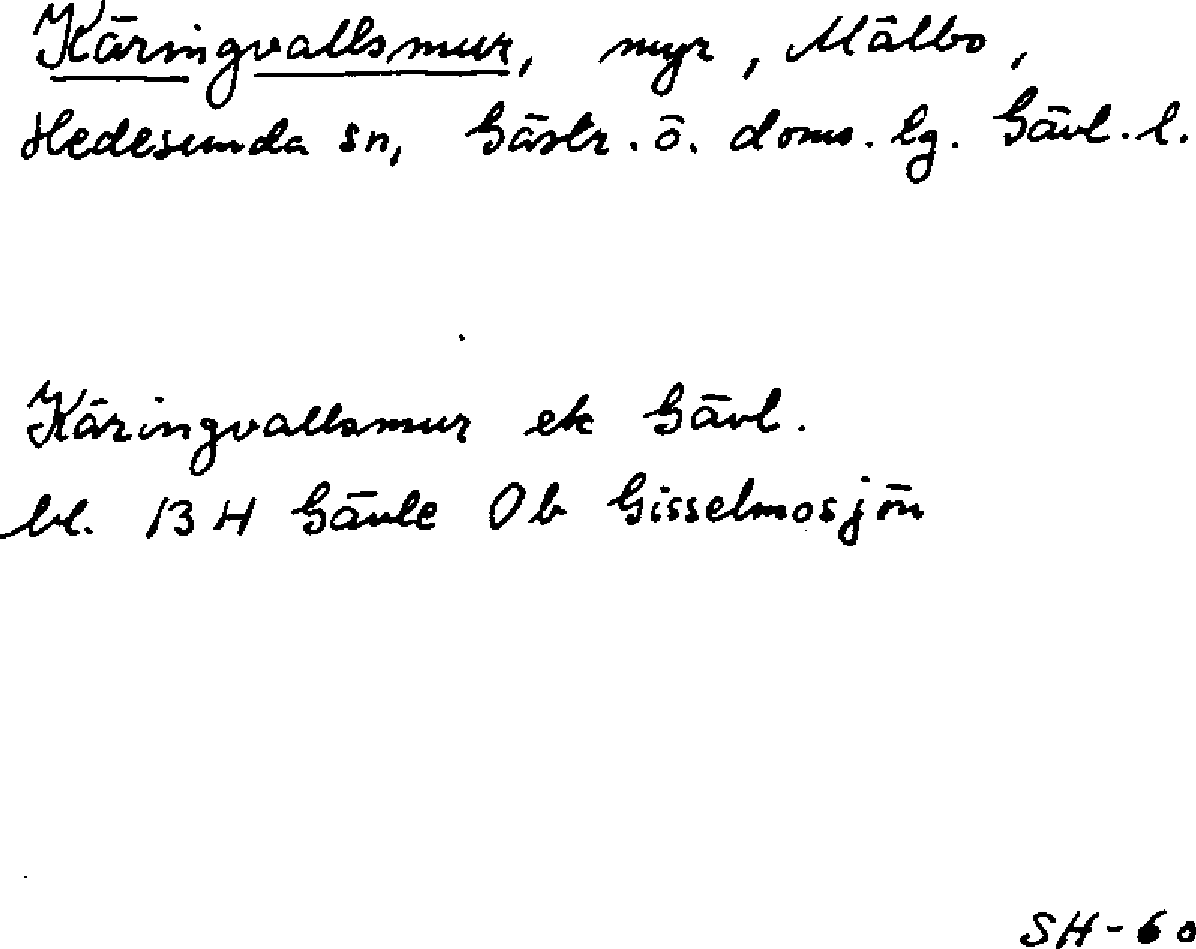 Käringvallsmur, myr, Mälbo,
Hedesunda sn, Gästr. ö. doms. lg. Gävl. l.
Käringvallsmur ek Gävl.
bl. 13 H Gävle 0b Gisselmosjön
SH-60